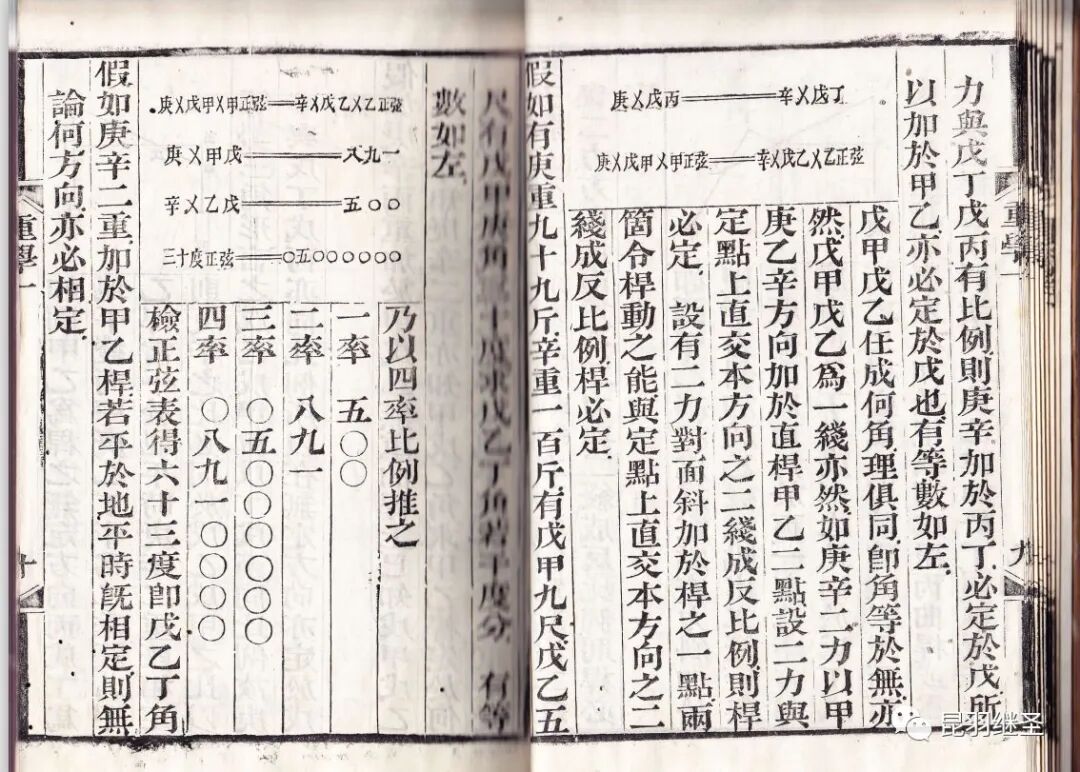 力與戊丁戊丙有比例則庚辛加於丙丁必定於戊所
以加於甲乙亦必定於戊也有等數如左
庚乂戊丙══辛乂戊丁
庚乂戊甲乂甲正弦══辛乂戊乙乂乙正弦
戊甲戊乙任成何角理俱同卽角等於無亦
然戊甲戊乙爲一綫亦然如庚辛二力以甲
庚乙辛方向加於直桿甲乙二點設二力與
定點上直交本方向之二綫成反比例則桿
必定 設有二力對面斜加於桿之一點兩
箇令桿動之能與定點上直交本方向之二
綫成反比例桿必定
假如有庚重九十九斤辛重一百斤有戊甲九尺戊乙五
重學一
九
尺有戊甲庚角三十度求戊乙丁角若干度分 有等
數如左
庚乂戊甲乂甲正弦══辛乂戊乙乂乙正弦
庚乂甲戊══八九一
辛乂乙戊══五〇〇
三十度正弦══〇五〇〇〇〇〇〇
乃以四率比例推之
一率 五〇〇
二率 八九一
三率 〇五〇〇〇〇〇〇
四率 〇八九一〇〇〇〇
檢正弦表得六十三度卽戊乙丁角
假如庚辛二重加於甲乙桿若平於地平時旣相定則無
論何方向亦必相定
重學一
十
昆羽继圣